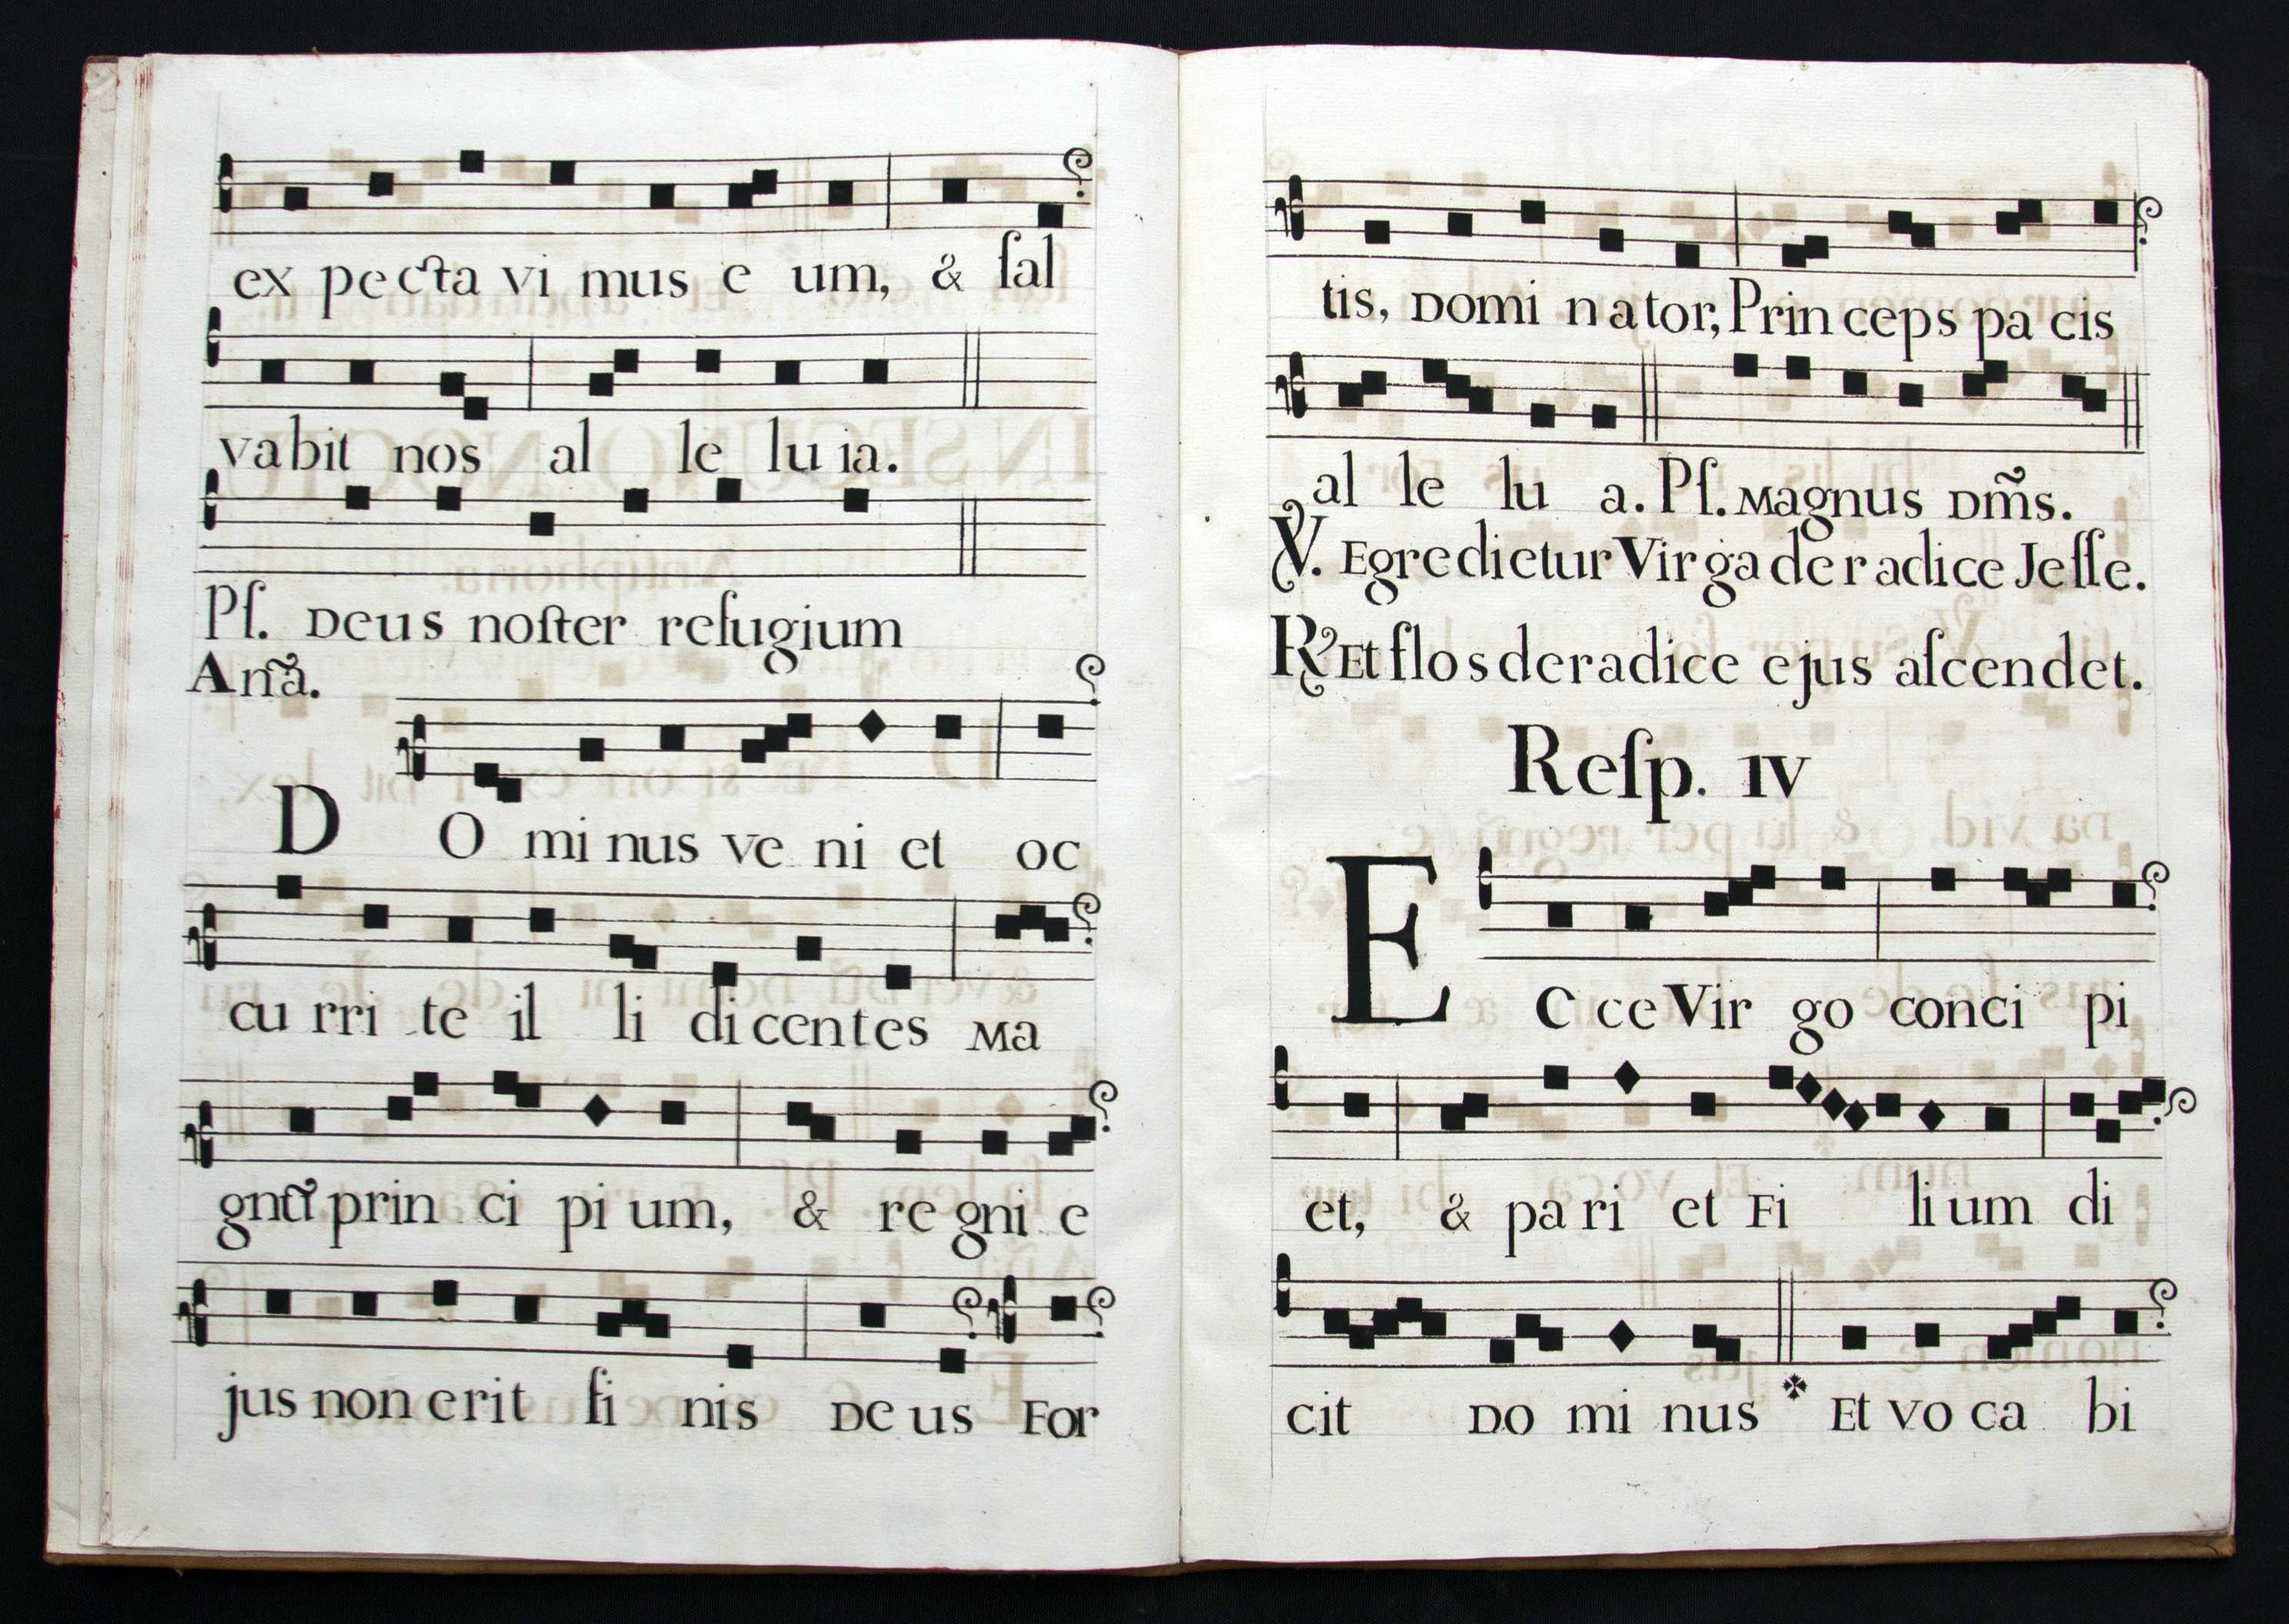 ex pecta vi mus e um, & ſal
vabit nos al le lu ia.
Pſ. Deus noſter refugium
Añã.
D O mi nus ve ni et oc
cu rri te il li di centes Ma
gnũ prin ci pi um, & re gni e
jus non erit fi nis De us For
tis, Domi nator, Prin ceps pa cis
al le lu a. Pſ. Magnus Dm̃s.
℣. Egredietur Virga de radice Jeſſe.
℟ Et flos de radice ejus aſcendet.
Reſp. IV
E C ce Vir go conci pi
et, & pa ri et Fi li um di
cit Do mi nus * Et vo ca bi